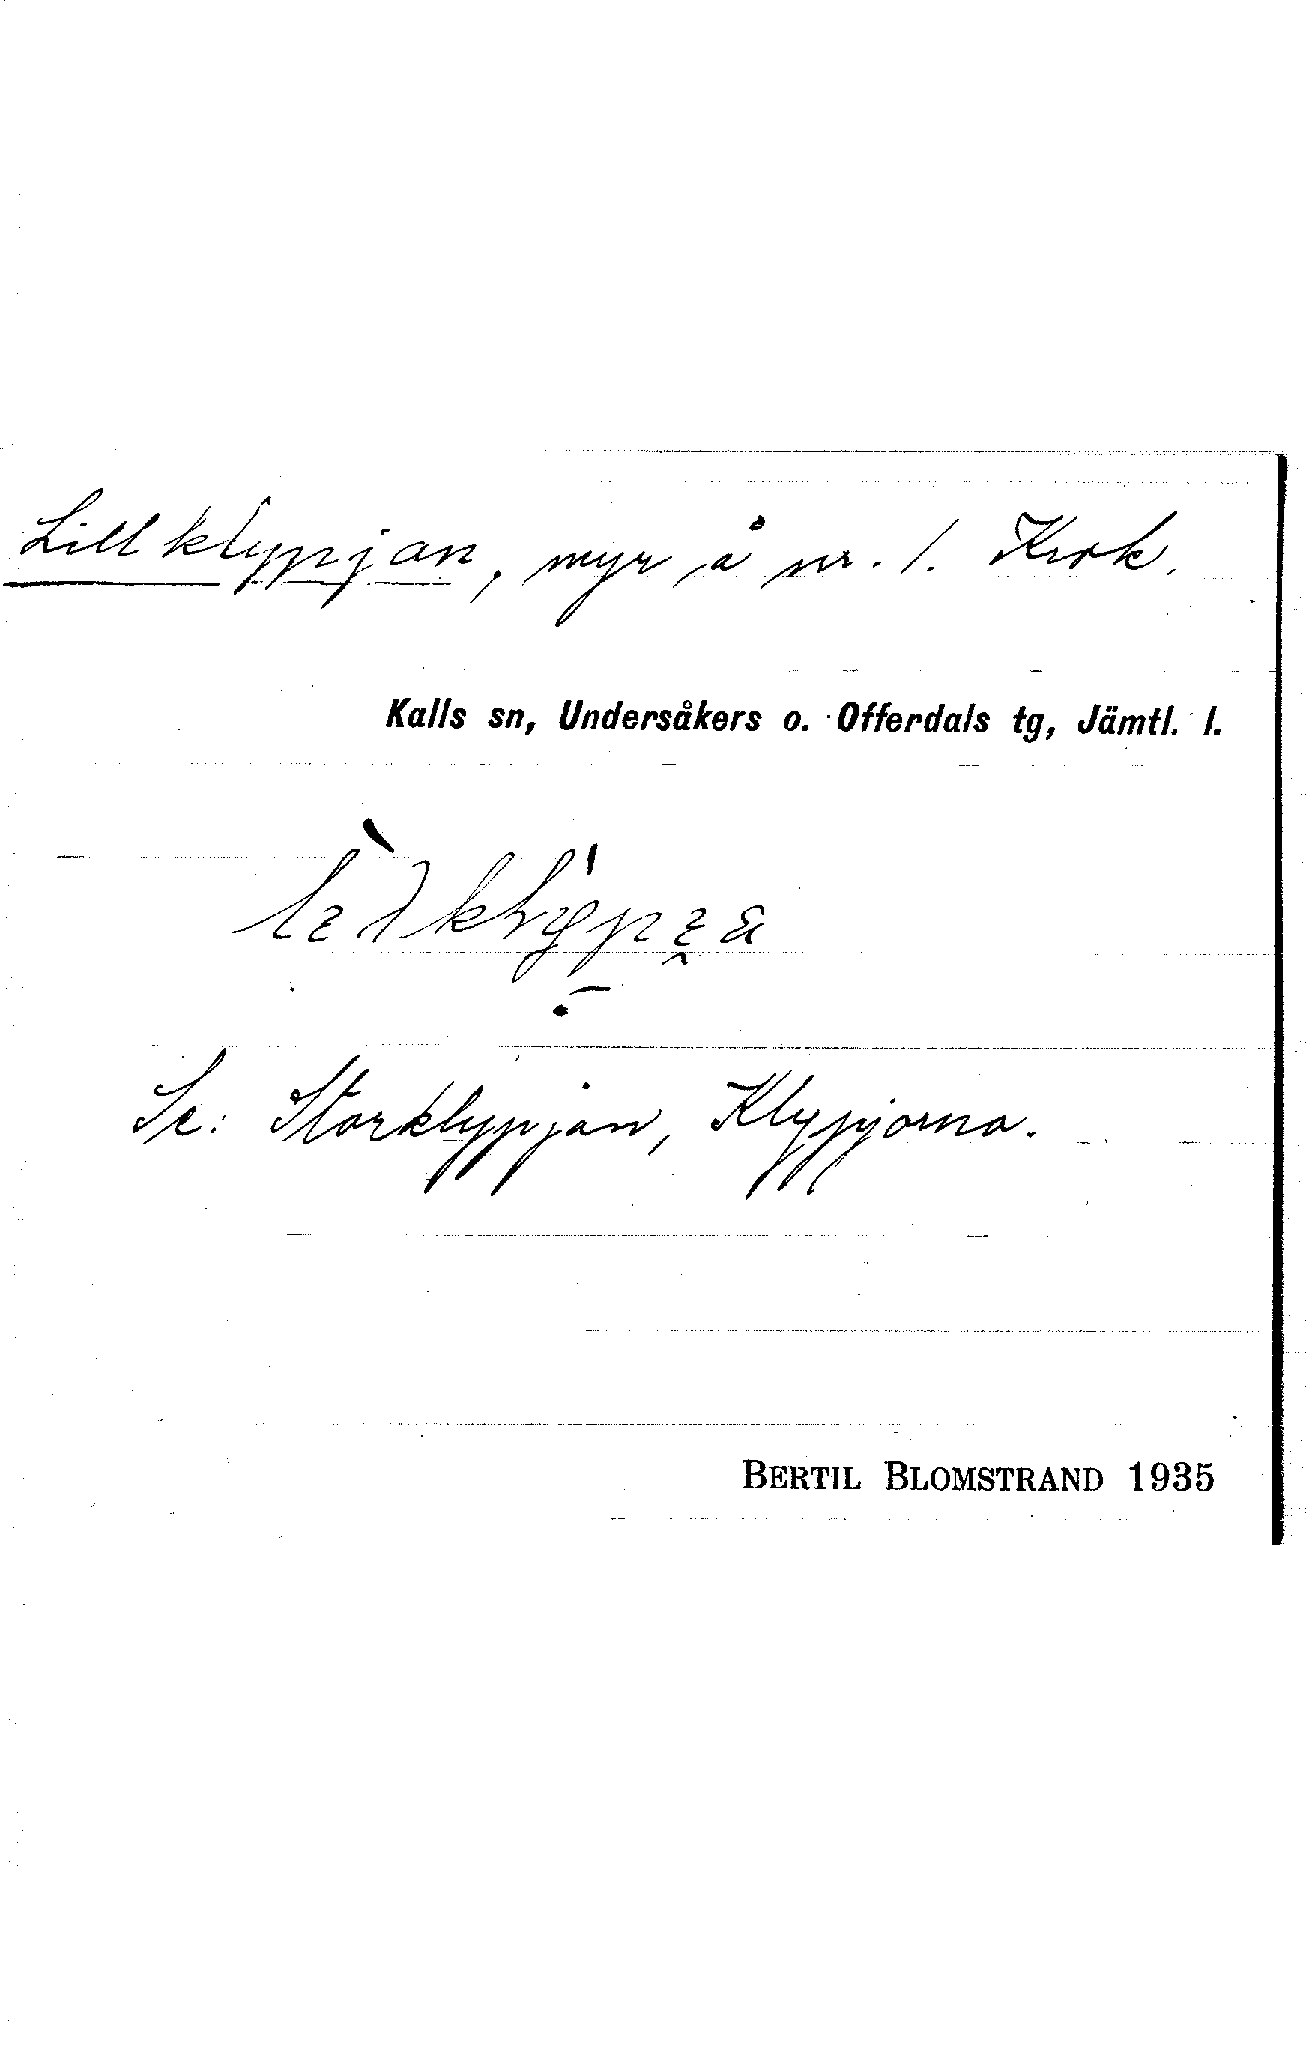 Lillklypjan, myr å nr. 1. Krok.
Kalls sn, Undersåkers o. Offerdals tg, Jämtl. l.
Se: Storklypjan, Klypjorna.
BERTIL BLOMSTRAND 1935